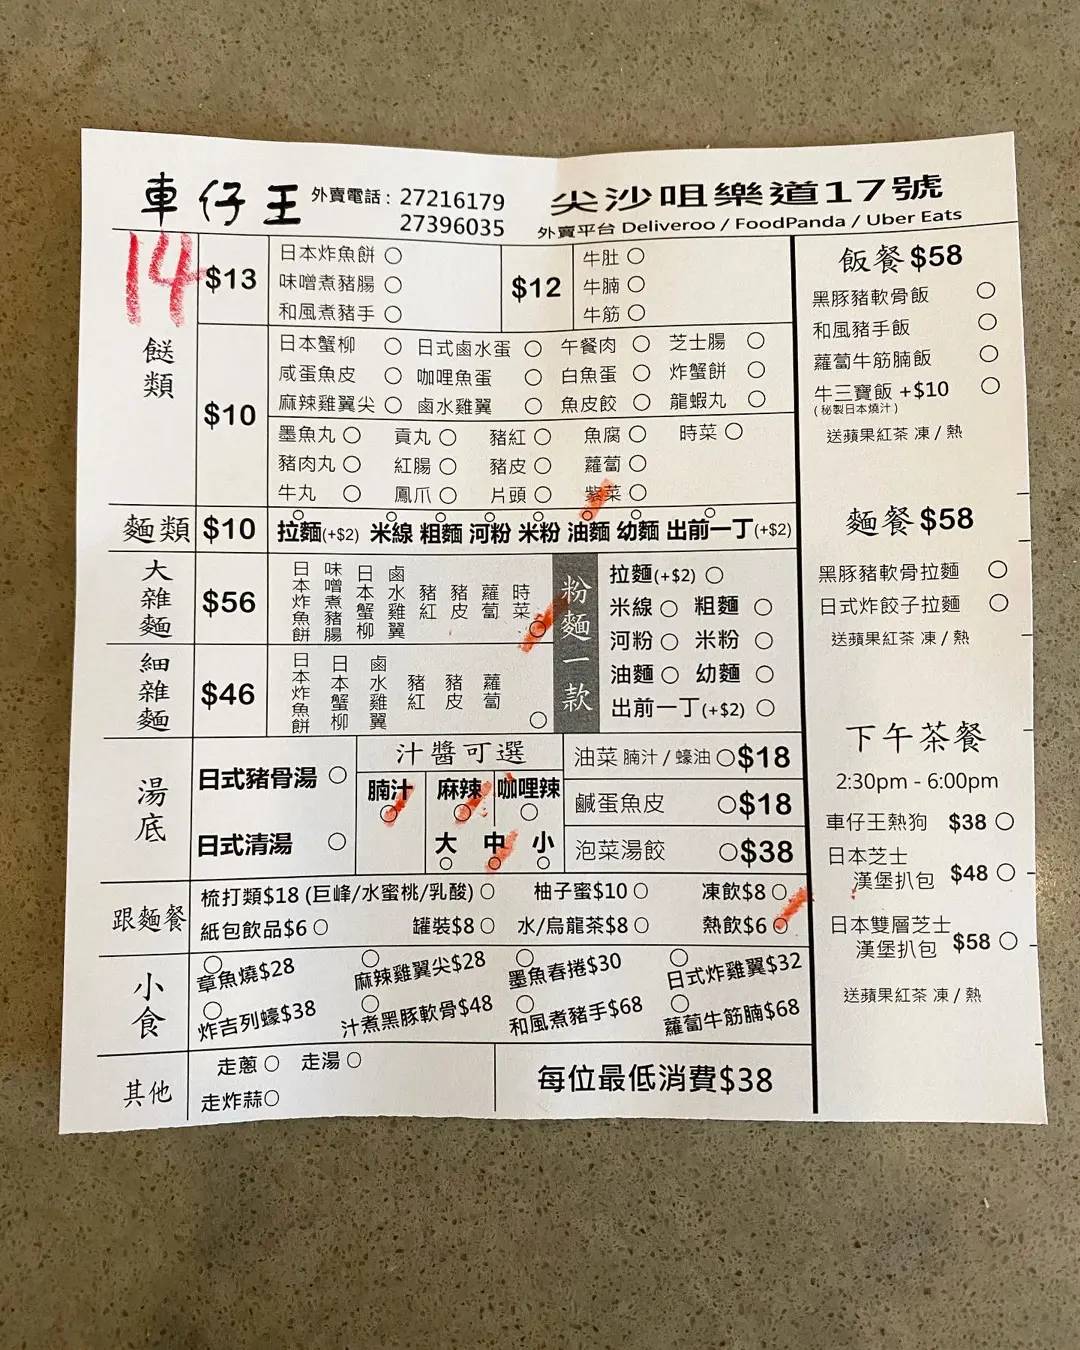 車仔王 外賣電話: 27216179
27396035
尖沙咀樂道17號
外賣平台 Deliveroo / FoodPanda / Uber Eats
14
餸類
$13
日本炸魚餅 ○
味噌煮豬腸 ○
和風煮豬手 ○
$12
牛肚 ○
牛腩 ○
牛筋 ○
$10
日本蟹柳 ○ 日式鹵水蛋 ○ 午餐肉 ○ 芝士腸 ○
咸蛋魚皮 ○ 咖哩魚蛋 ○ 白魚蛋 ○ 炸蟹餅 ○
麻辣雞翼尖 ○ 鹵水雞翼 ○ 魚皮餃 ○ 龍蝦丸 ○
墨魚丸 ○ 貢丸 ○ 豬紅 ○ 魚腐 ○ 時菜 ○
豬肉丸 ○ 紅腸 ○ 豬皮 ○ 蘿蔔 ○
牛丸 ○ 鳳爪 ○ 片頭 ○ 紫菜 ○
麵類 $10 拉麵(+$2) 米線 粗麵 河粉 米粉 油麵 幼麵 出前一丁(+$2)
大雜麵 $56
日本炸魚餅
味噌煮豬腸
日本蟹柳
鹵水雞翼
豬紅
豬皮
蘿蔔
時菜 ○
細雜麵 $46
日本炸魚餅
日本蟹柳
鹵水雞翼
豬紅
豬皮
蘿蔔 ○
粉麵一款
拉麵(+$2) ○
米線 ○ 粗麵 ○
河粉 ○ 米粉 ○
油麵 ○ 幼麵 ○
出前一丁(+$2) ○
湯底
日式豬骨湯 ○
日式清湯 ○
汁醬可選
腩汁 麻辣 咖哩辣
大 中 小
油菜 腩汁 / 蠔油 ○ $18
鹹蛋魚皮 ○ $18
泡菜湯餃 ○ $38
跟麵餐
梳打類$18 (巨峰/水蜜桃/乳酸) ○ 柚子蜜$10 ○ 凍飲$8 ○
紙包飲品$6 ○ 罐裝$8 ○ 水/烏龍茶$8 ○ 熱飲$6 ○
小食
章魚燒$28 麻辣雞翼尖$28 墨魚春捲$30 日式炸雞翼$32
炸吉列蠔$38 汁煮黑豚軟骨$48 和風煮豬手$68 蘿蔔牛筋腩$68
其他
走蔥 ○ 走湯 ○
走炸蒜 ○
每位最低消費$38
飯餐 $58
黑豚豬軟骨飯 ○
和風豬手飯 ○
蘿蔔牛筋腩飯 ○
牛三寶飯 +$10 ○
(秘製日本燒汁)
送蘋果紅茶 凍 / 熱
麵餐 $58
黑豚豬軟骨拉麵 ○
日式炸餃子拉麵 ○
送蘋果紅茶 凍 / 熱
下午茶餐
2:30pm - 6:00pm
車仔王熱狗 $38 ○
日本芝士
漢堡扒包 $48 ○
日本雙層芝士
漢堡扒包 $58 ○
送蘋果紅茶 凍 / 熱